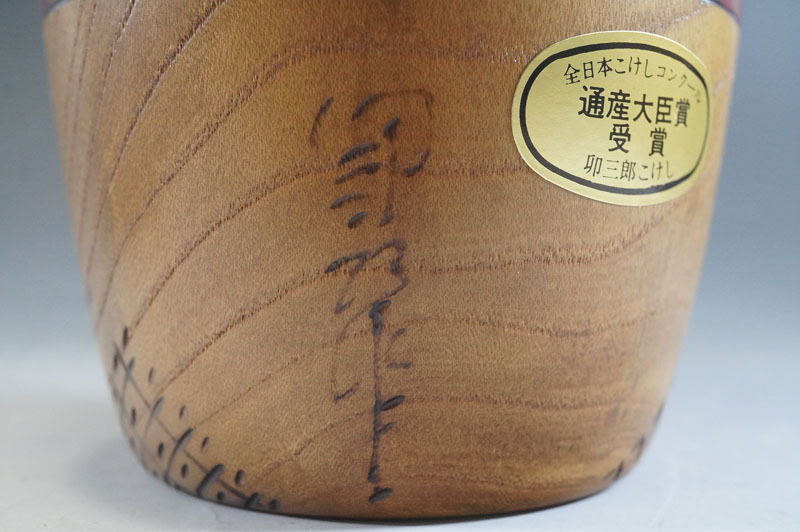 全日本こけしコンクール
通産大臣賞
受賞
卯三郎こけし
卯三郎作